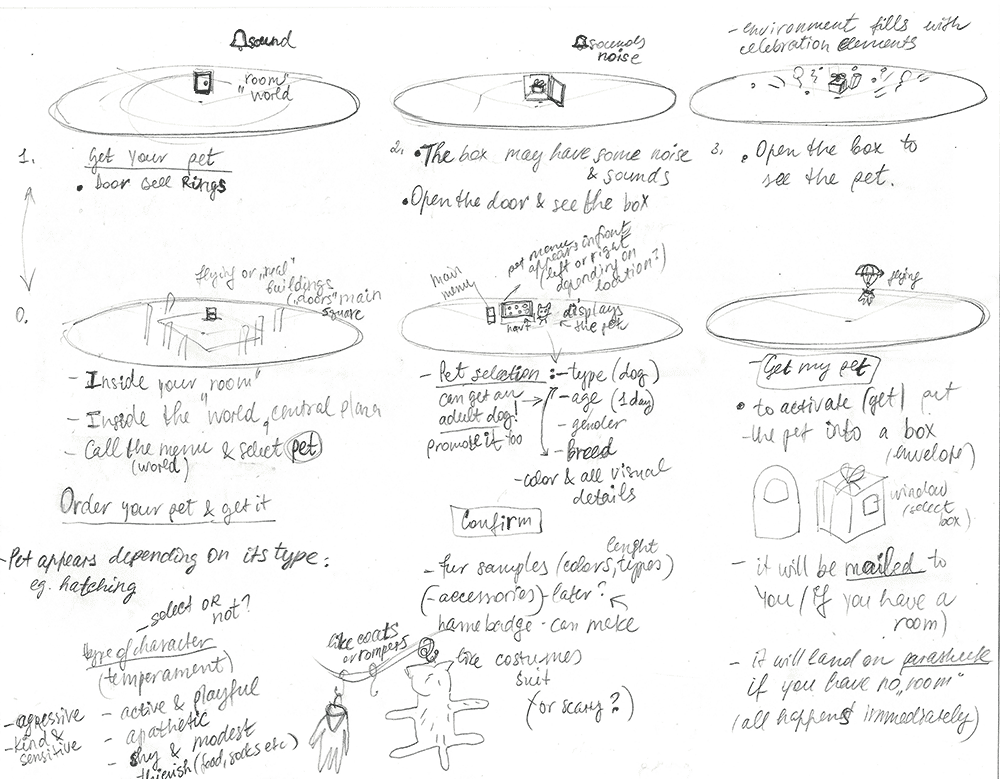 sound
"room"
"world
1.
Get your pet
• Door bell Rings
sounds
noise
2. • The box may have some noise
& sounds
• Open the door & see the box
- environment fills with
celebration elements
3. • Open the box to
see the pet.
0.
flying or „real"
buildings
(„doors" main
square
- Inside your room"
- Inside the "world, central plaza
- Call the menu & select pet
(world)
Order your pet & get it
- Pet appears depending on its type:
eg. hatching
- select or
not?
type of character
(temperament)
- active & playful
- apathetic
- shy & modest
- thievish (food, socks etc)
- agressive
- kind &
sensitive
main
menu
pet menu
appears in front
(left or right
depending on
location?)
next
displays
the pet
- Pet selection :- type (dog)
can get an
adult dog!
promote it too
- age (1 day)
- gender
- breed
- color & all visual
details
Confirm
- fur samples (colors, types)
lenght
(- accessories) - later?
namebadge - can make
like coats
or rompers
like costumes
suit
(or scary?)
flying
- Get my pet
• to activate (get) pet
- the pet into a box
(envelope)
window
(select
box)
- it will be mailed to
you / if you have a
room)
- it will land on parashute
if you have no „room"
(all happens immediately)